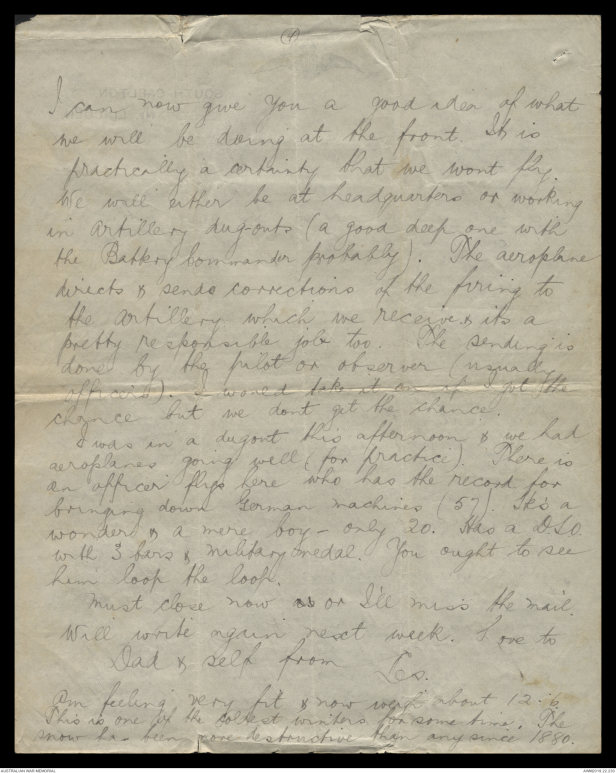 I can now give you a good idea of what
we will be doing at the front. It is
practically a certainty that we wont fly.
We will either be at headquarters or working
in artillery dug-outs (a good deep one with
the Battery Commander probably). The aeroplane
directs & sends corrections of the firing to
the artillery which we receive & its a
pretty responsible job too. The sending is
done by the pilot or observer (usually
officers). I would take it on if I got the
chance but we dont get the chance.
I was in a dugout this afternoon & we had
aeroplanes going well (for practice). There is
an officer flys here who has the record for
bringing down German machines (57). He's a
wonder & a mere boy - only 20. Has a D.S.O.
with 3 bars & military medal. You ought to see
him loop the loop.
Must close now or I'll miss the mail.
Will write again next week. Love to
Dad & self from
Les.
Am feeling very fit & now weigh about 12.6.
This is one of the coldest winters for some time. The
snow has been more destructive than any since 1880.
AUSTRALIAN WAR MEMORIAL